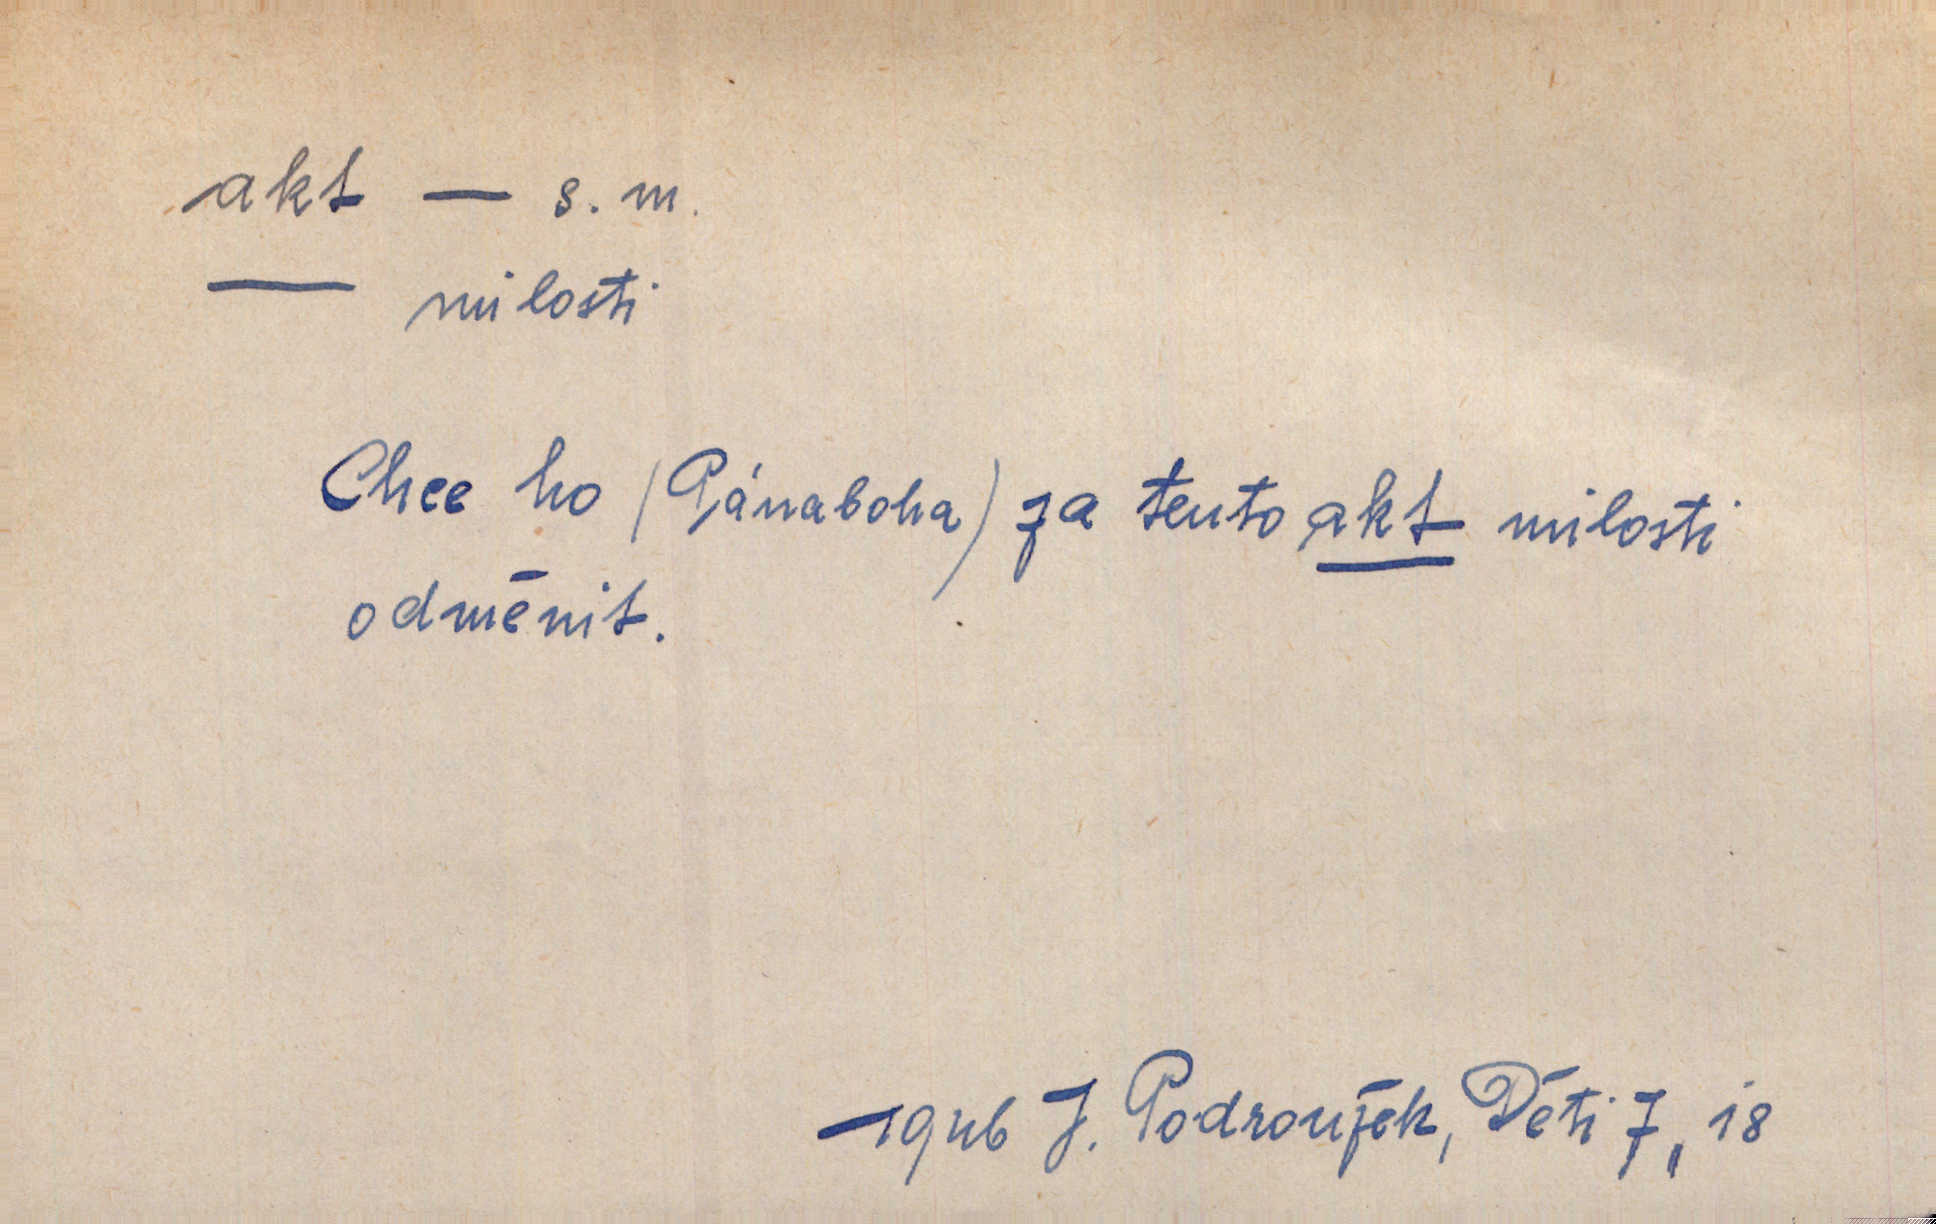 akt — s. m.
— milosti
Chce ho (Pánaboha) za tento akt milosti
odměnit.
1946 J. Podroužek, Děti 7, 18